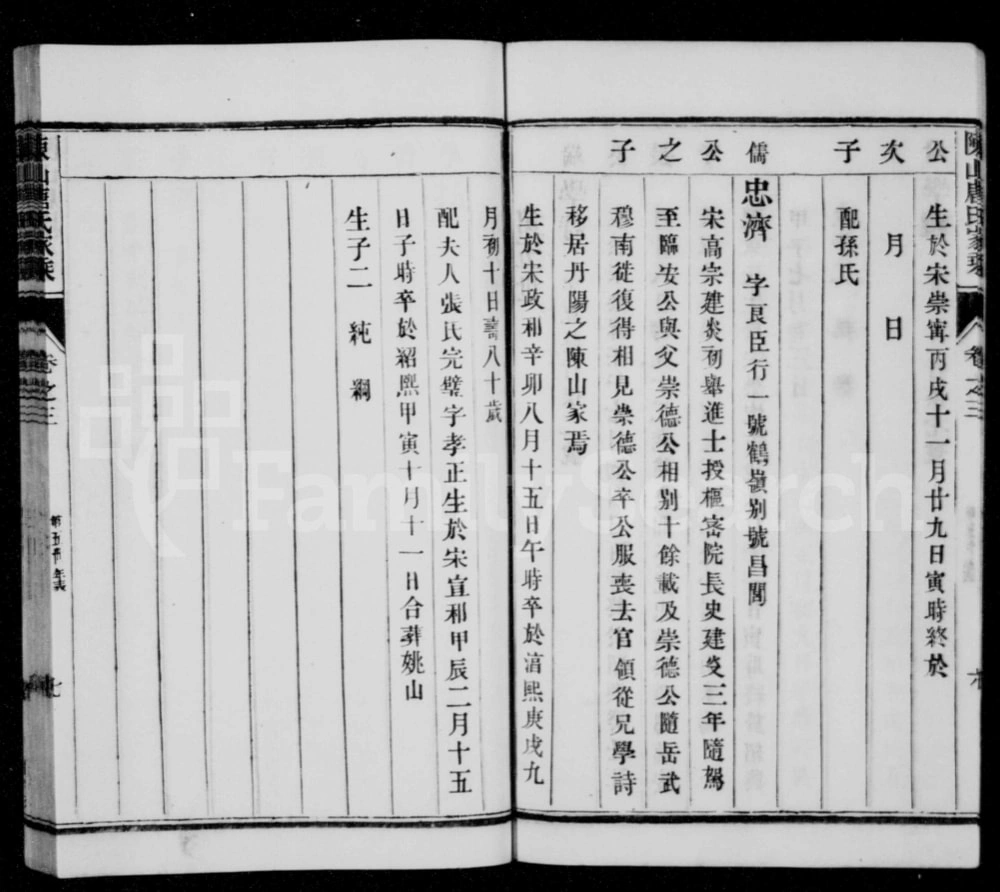 陳山唐氏家乘
卷之三
公 生於宋崇寧丙戌十一月廿九日寅時終於
次 月 日
子 配孫氏
儒 忠濟 字良臣行一號鶴嶺別號昌閣
公 宋高宗建炎初舉進士授樞密院長史建炎三年隨駕
之 至臨安公與父崇德公相別十餘載及崇德公隨岳武
子 穆南徙復得相見崇德公卒公服喪去官領從兄學詩
移居丹陽之陳山家焉
生於宋政和辛卯八月十五日午時卒於淳熙庚戌九
月初十日壽八十歲
配夫人張氏完璧字孝正生於宋宣和甲辰二月十五
日子時卒於紹熙甲寅十月十一日合葬姚山
生子二 純 綱
陳山唐氏家乘
卷之三
七
FamilySearch